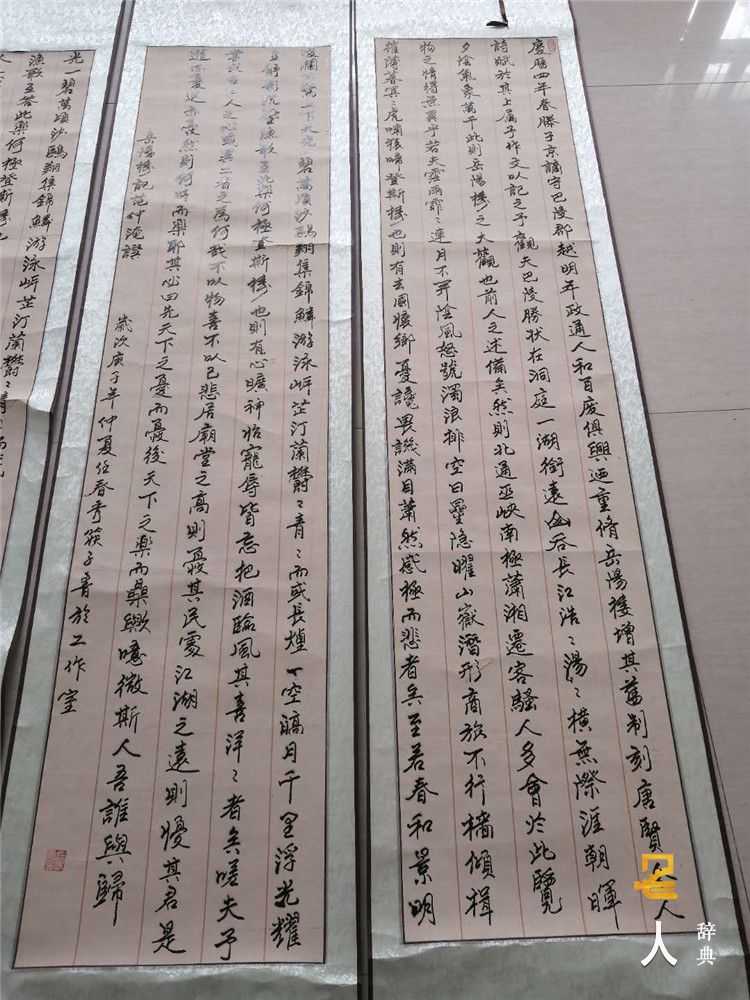 慶曆四年春滕子京謫守巴陵郡越明年政通人和百废俱興迺重脩岳陽楼增其舊制刻唐賢今人
詩賦於其上属予作文以記之予觀夫巴陵勝状在洞庭一湖銜遠山吞長江浩〻湯〻橫無際涯朝暉
夕陰氣象萬千此則岳陽楼之大觀也前人之述備矣然則北通巫峽南極瀟湘遷客騷人多會於此覽
物之情得無異乎若夫霪雨霏〻連月不開陰風怒號濁浪排空日星隐曜山嶽潛形商旅不行檣傾楫
摧薄暮冥〻虎嘯猿啼登斯楼也則有去國懷鄉憂讒畏譏滿目蕭然感極而悲者矣至若春和景明
波瀾不驚上下天光一碧萬頃沙鷗翔集錦鱗游泳岸芷汀蘭欝〻青〻而或長煙一空皜月千里浮光耀
金靜影沉璧漁歌互荅此樂何極登斯楼也則有心曠神怡寵辱皆忘把酒臨風其喜洋〻者矣嗟夫予
嘗求古仁人之心或異二者之為何哉不以物喜不以己悲居廟堂之高則憂其民處江湖之遠則憂其君是
進亦憂退亦憂然則何時而樂耶其必曰先天下之憂而憂後天下之樂而樂歟噫微斯人吾誰與歸
岳陽楼記范仲淹
歲次庚子年仲夏任春秀筷子書於工作室
光一碧萬頃沙鷗翔集錦鱗游泳岸芷汀蘭欝〻青〻
漁歌互荅此樂何極登斯楼也
人
辞典